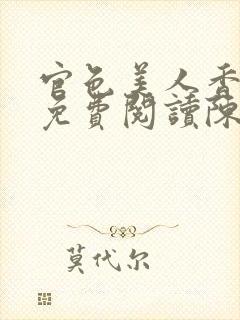 官色美人香
免費閱讀陳
莫代尔